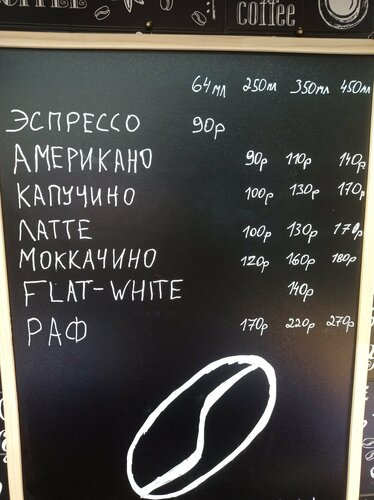 coffee
64мл 250мл 350мл 450мл
ЭСПРЕССО 90р
АМЕРИКАНО 90р 110р 140р
КАПУЧИНО 100р 130р 170р
ЛАТТЕ 100р 130р 170р
МОККАЧИНО 120р 160р 180р
FLAT-WHITE 140р
РАФ 170р 220р 270р